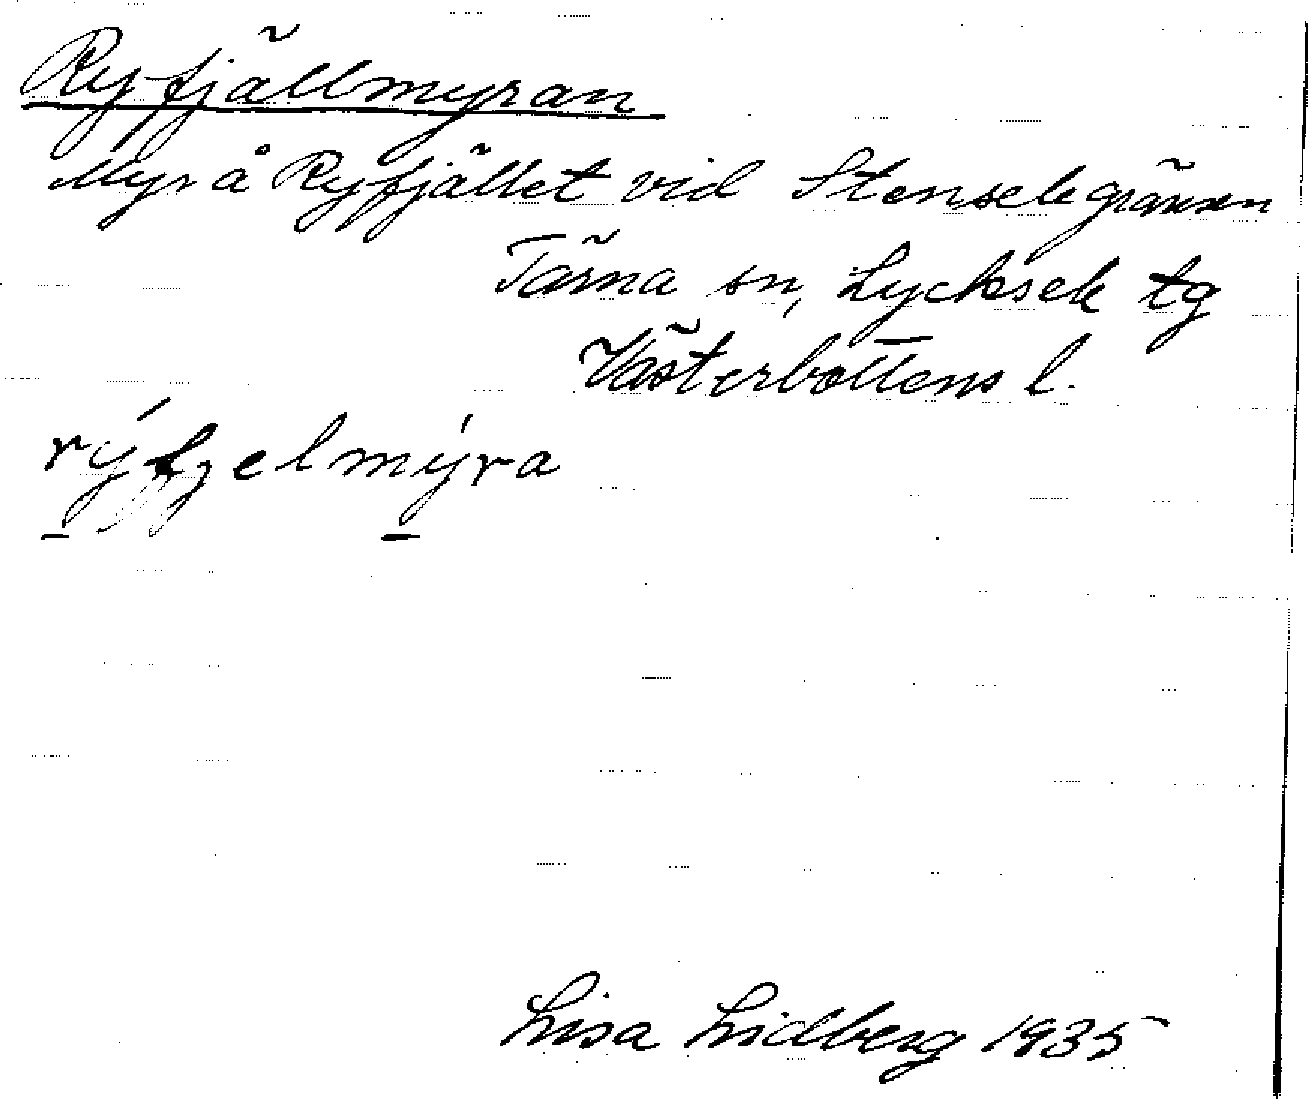 Ryfjällmyran
Myr å Ryfjället vid Stenselegränsen
Tärna sn, Lycksele tg
Västerbottens l.
rýfjelmýra
Lisa Lidberg 1935